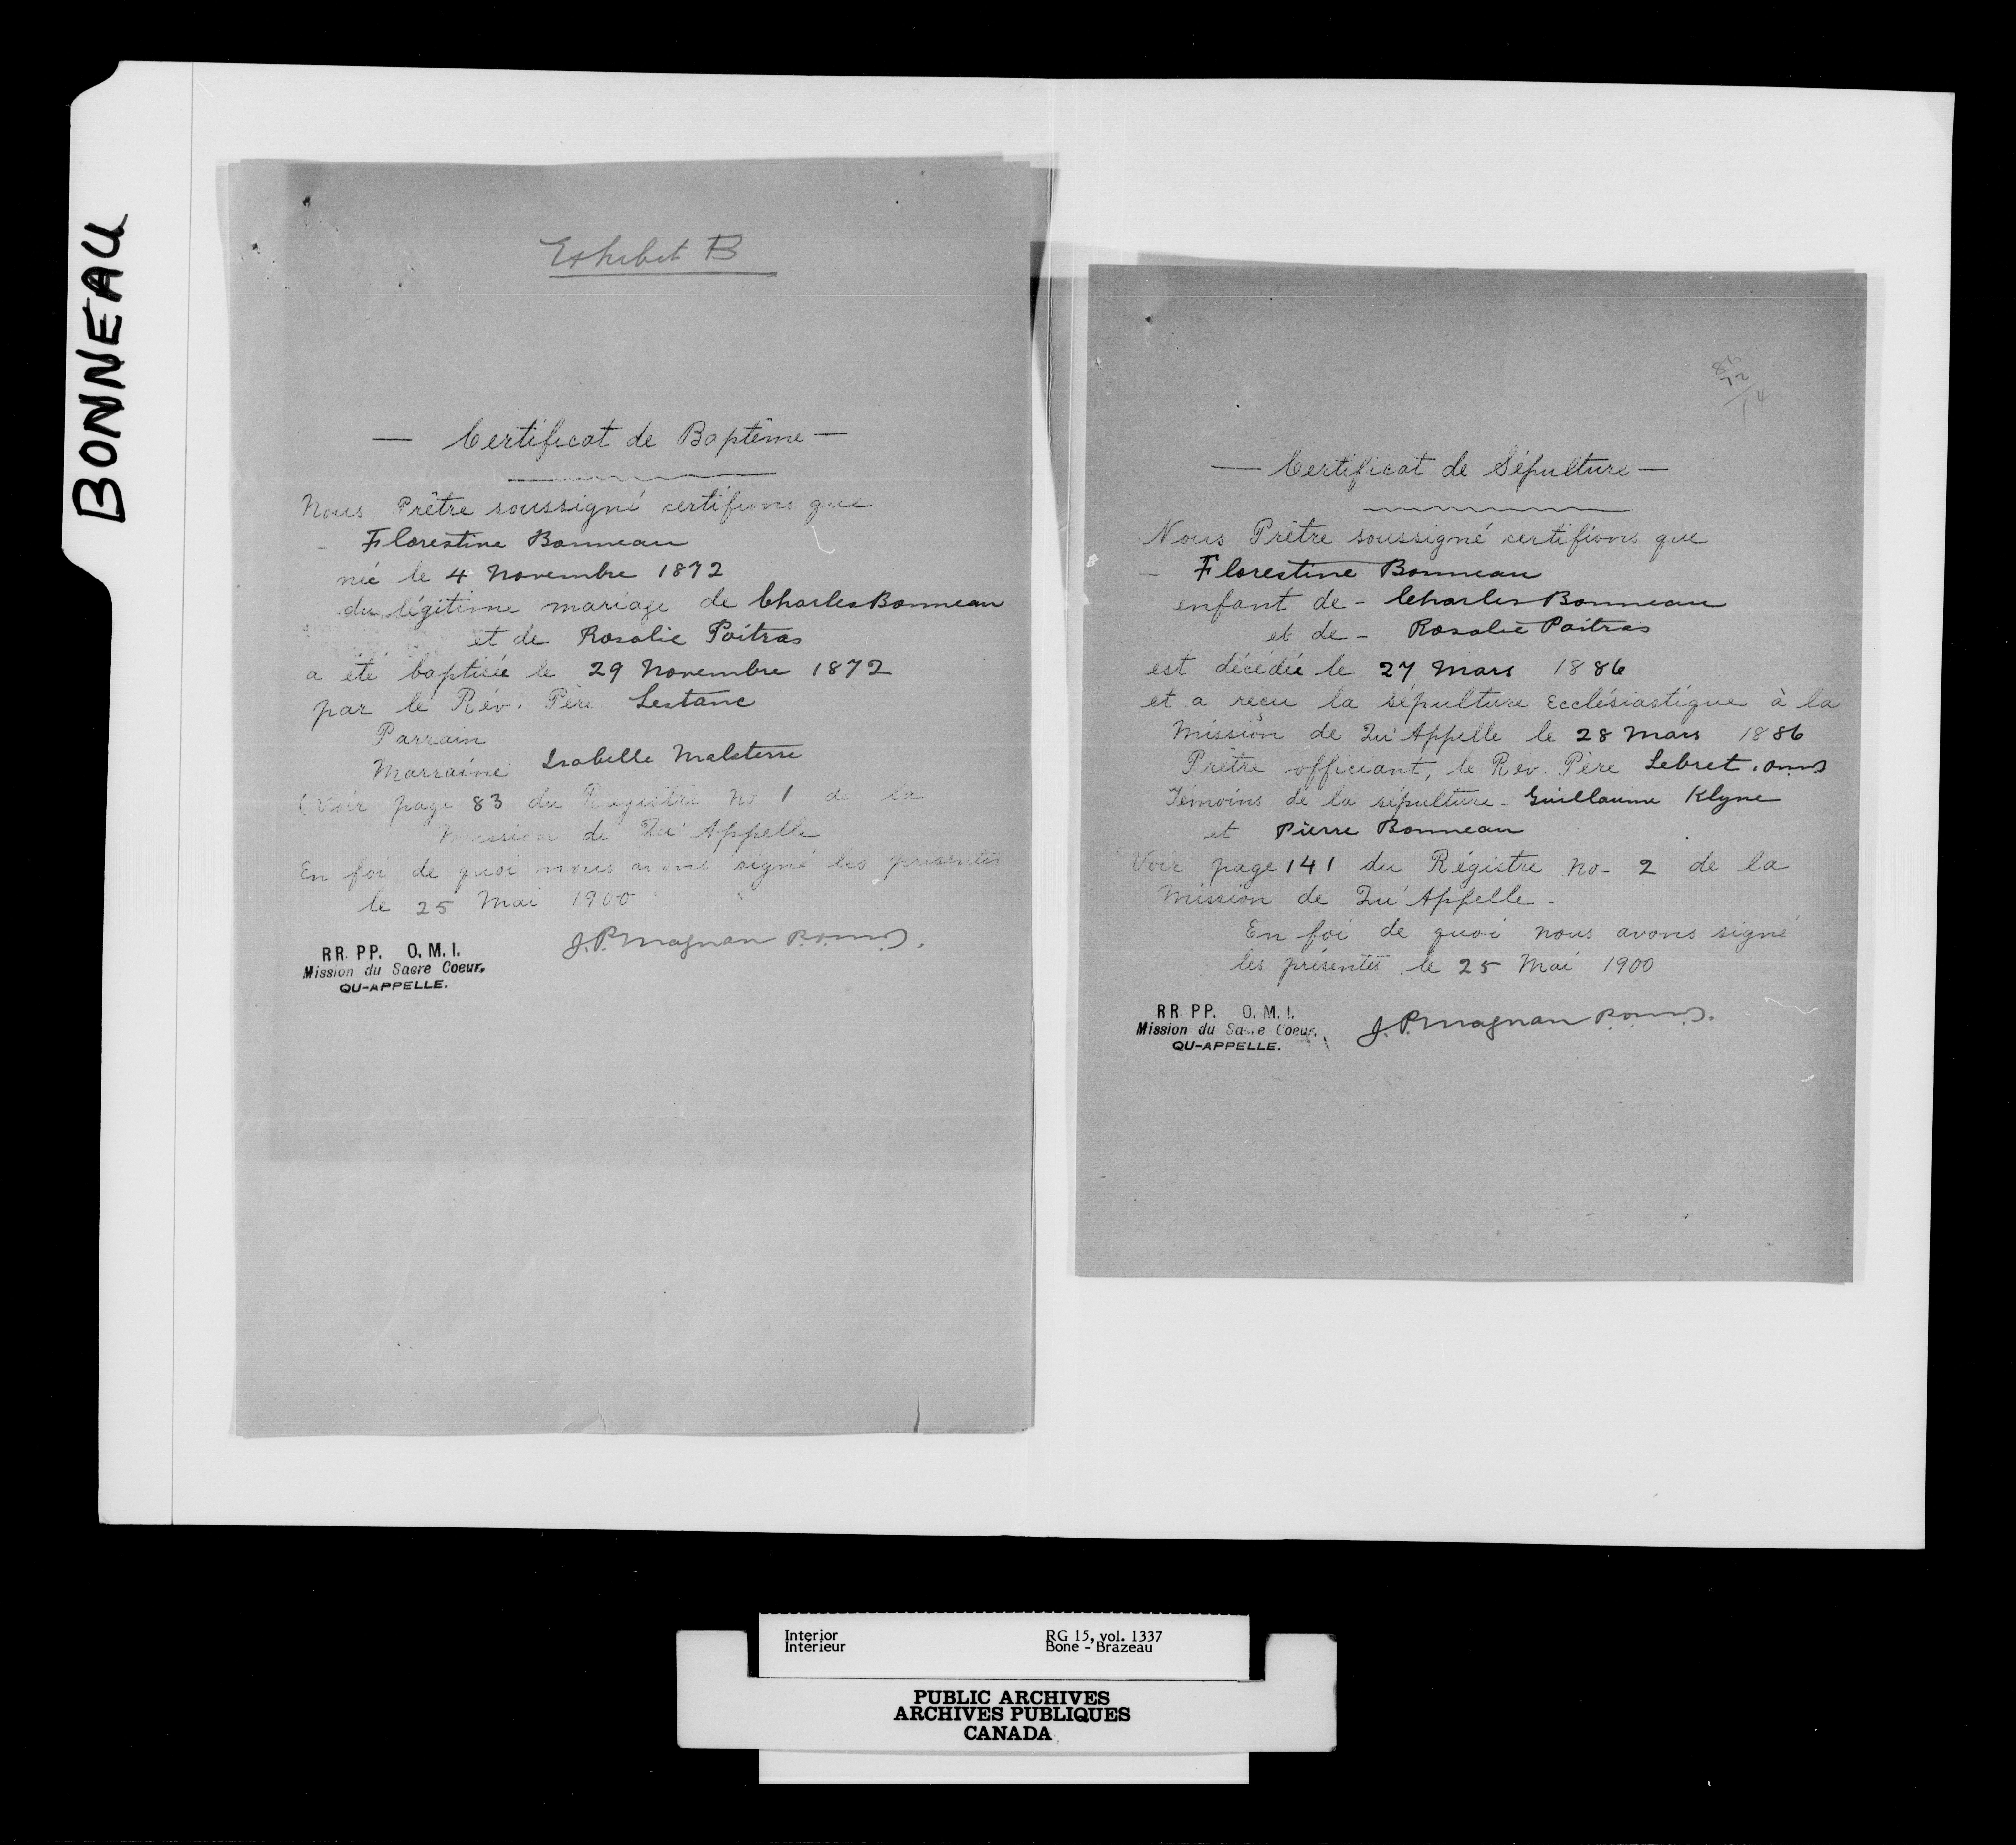 BONNEAU
Exhibit B
— Certificat de Baptême —
Nous Prêtre soussigné certifions que
- Florestine Bonneau
née le 4 Novembre 1872
du légitime mariage de Charles Bonneau
et de Rosalie Poitras
a été baptisée le 29 Novembre 1872
par le Rév. Père Lestanc
Parrain
Marraine Isabelle Malaterre
(Voir page 83 du Régistre No 1 de la
Mission de Qu'Appelle
En foi de quoi nous avons signé les présentes
le 25 Mai 1900
J. P. Magnan P.O.M.I.
RR. PP. O. M. I.
Mission du Sacre Coeur.
QU-APPELLE.
86
72
14
— Certificat de Sépulture —
Nous Prêtre soussigné certifions que
- Florestine Bonneau
enfant de - Charles Bonneau
et de - Rosalie Poitras
est décédée le 27 Mars 1886
et a reçu la sépulture Ecclésiastique à la
Mission de Qu'Appelle le 28 Mars 1886
Prêtre officiant, le Rev. Père Lebret, O.M.I.
Témoins de la sépulture - Guillaume Klyne
et Pierre Bonneau
Voir page 141 du Régistre No - 2 de la
Mission de Qu'Appelle -
En foi de quoi nous avons signé
les présentes le 25 Mai 1900
RR. PP. O. M. I.
Mission du Sacre Coeur.
QU-APPELLE.
J. P. Magnan P.O.M.I.
Interior
Intérieur
RG 15, vol. 1337
Bone - Brazeau
PUBLIC ARCHIVES
ARCHIVES PUBLIQUES
CANADA